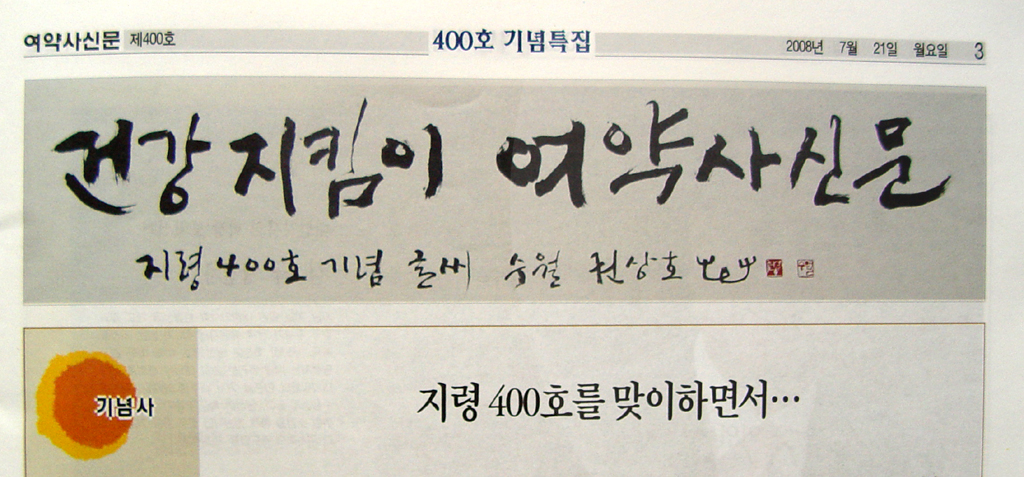 여약사신문 제400호 400호 기념특집 2008년 7월 21일 월요일 3
건강 지킴이 여약사신문
지령 400호 기념 글씨 수월 권상호
기념사
지령 400호를 맞이하면서…